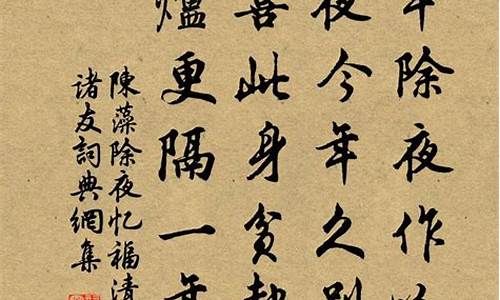 年除夜作
夜今年久別
喜此身贫
爐更隔一年
陳藻除夜忆福清
諸友詞典網集